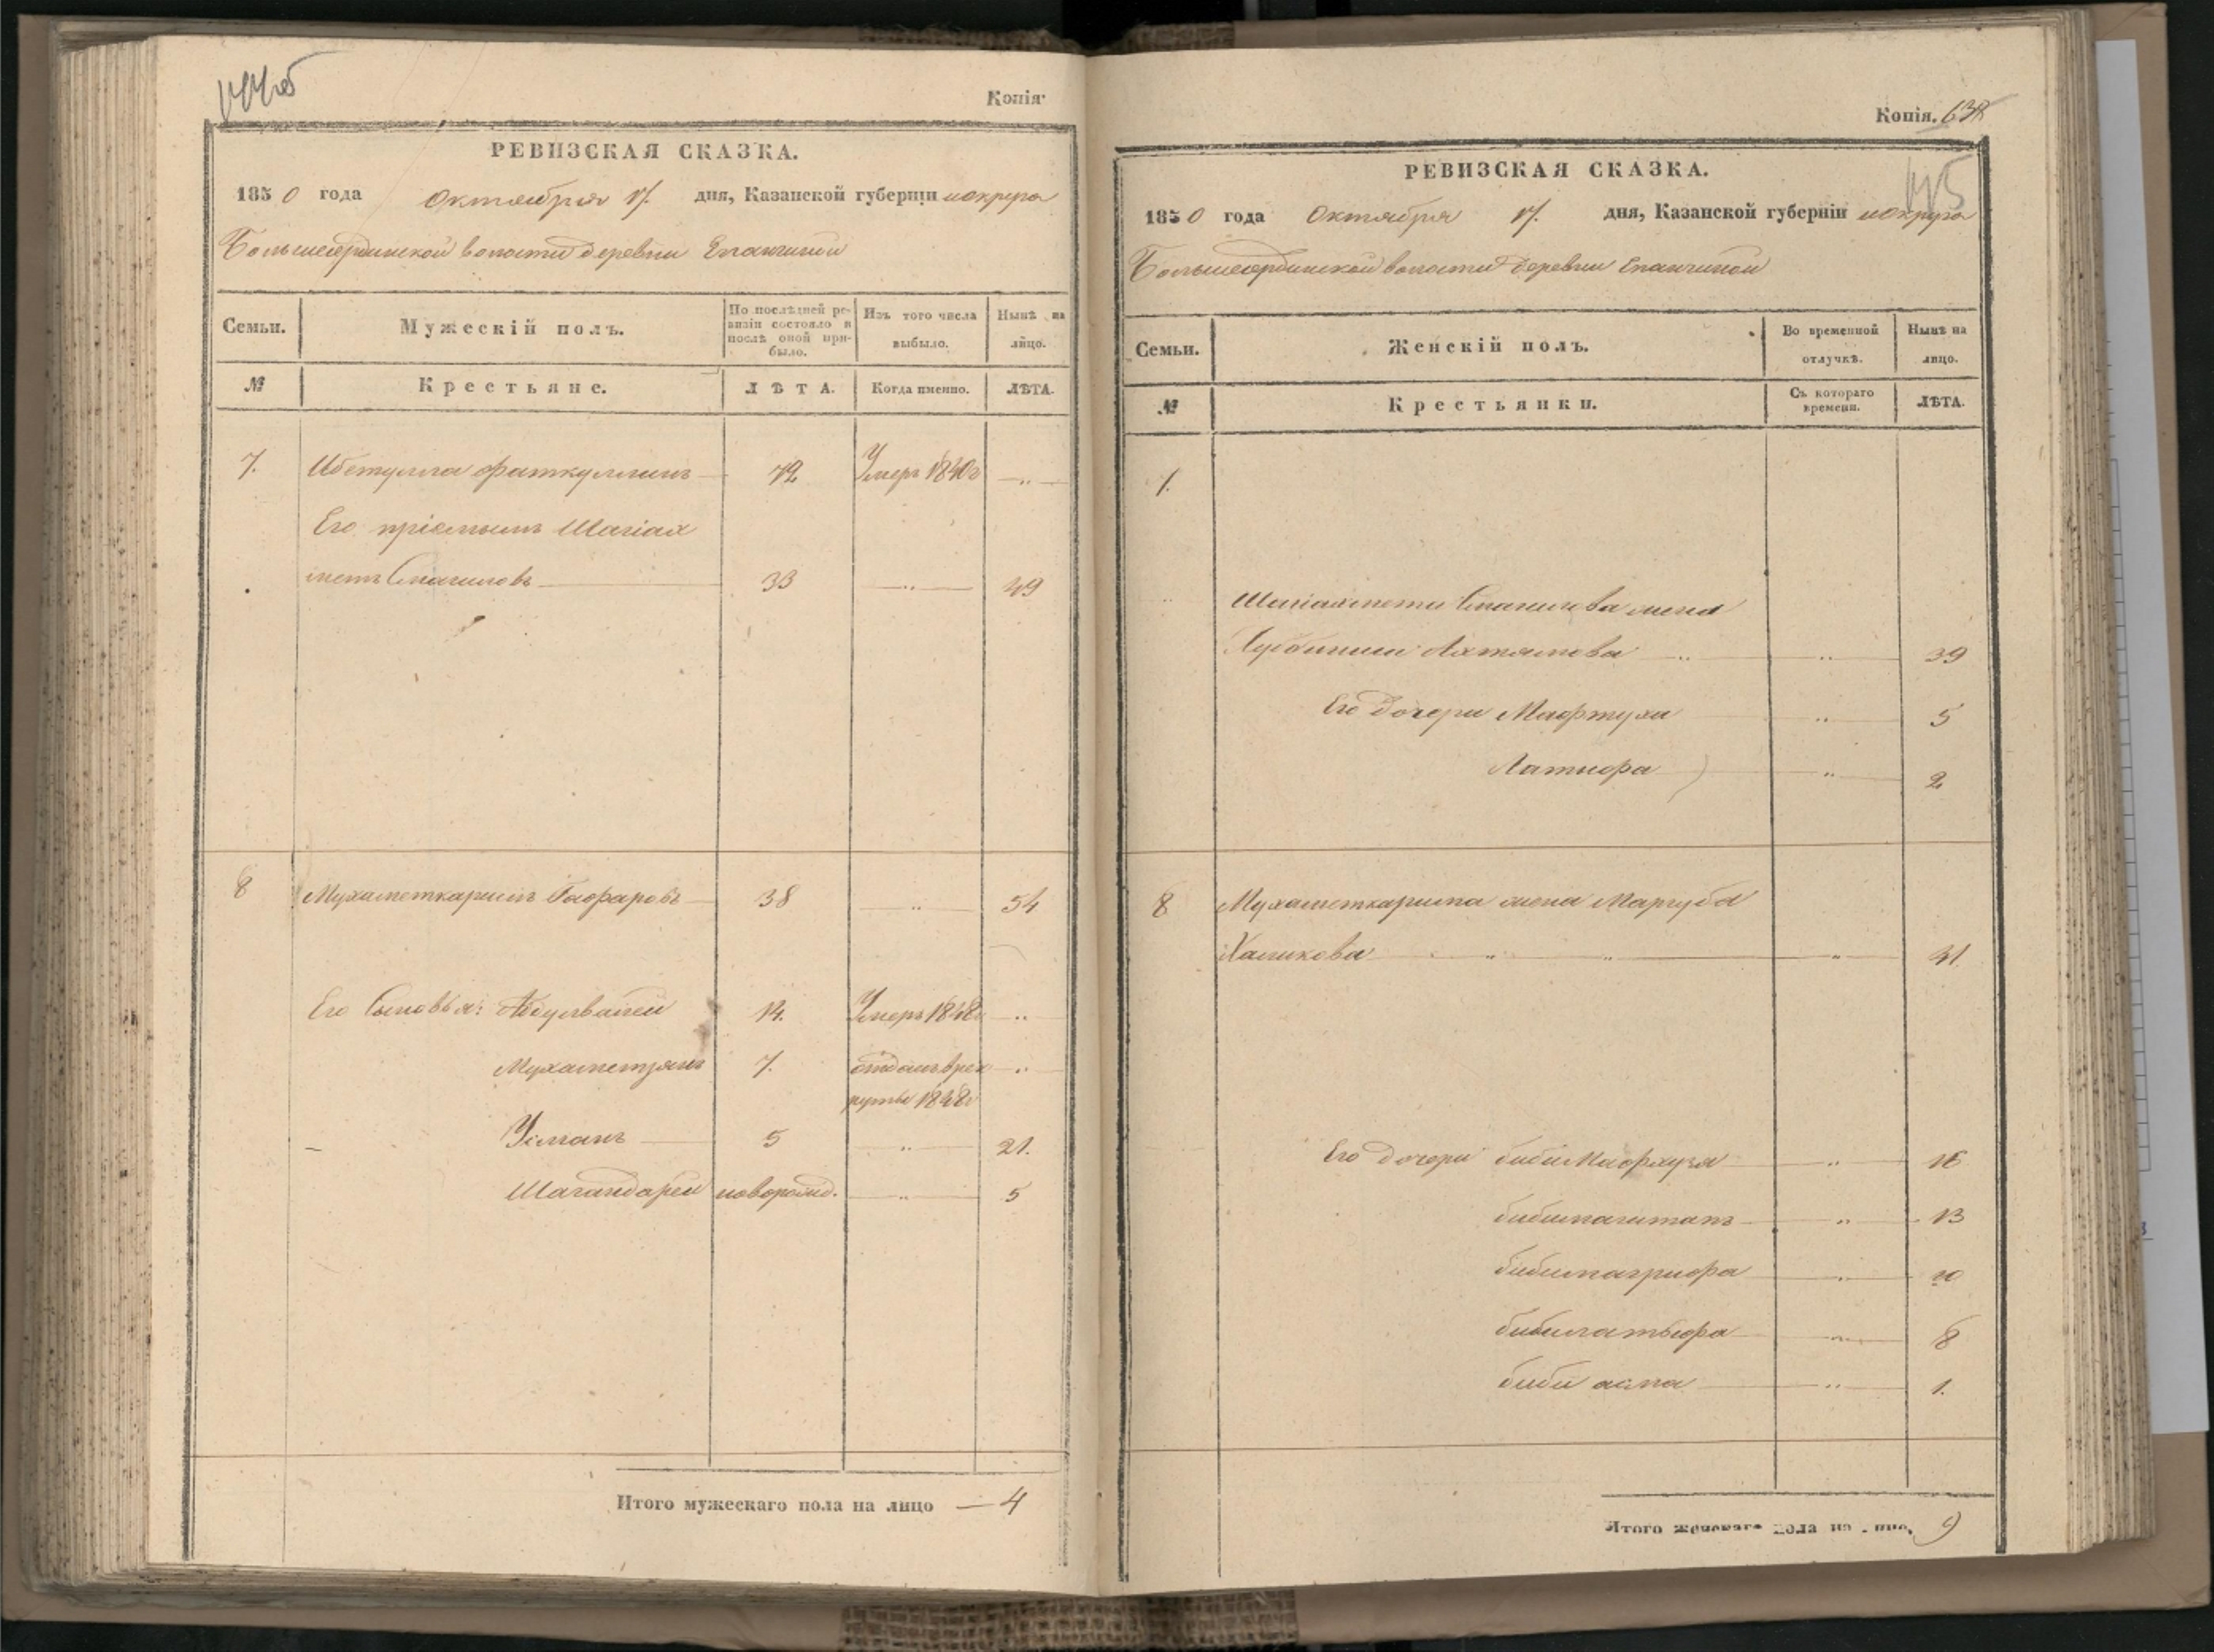 Копія
РЕВИЗСКАЯ СКАЗКА.
1850 года Октября 17. дня, Казанской губерніи и округа
Большеердинской волости деревни Епанчиной
Семьи. Мужескій полъ. По послѣдней ревизіи состояло и послѣ оной прибыло. Изъ того числа выбыло. Нынѣ на лицо.
№ Крестьяне. ЛѢТА. Когда именно. ЛѢТА.
7. Ибетулла Фаткуллинъ 72 Умеръ 1840г "
Его пріемышъ Шагіах
метъ Смагиловъ 33 " 49
8 Мухаметкаримъ Гафаровъ 38 " 54
Его Сыновья: 14. Умеръ 1848г "
Мухаметзянъ 7. отданъ врек "
руты 1848г
Усманъ 5 " 21.
Шагандарей новорожд. " 5
Итого мужескаго пола на лицо — 4
Копія.
РЕВИЗСКАЯ СКАЗКА.
1850 года Октября 17. дня, Казанской губерніи и округа
Большеердинской волости деревни Епанчиной
Семьи. Женскій полъ. Во временной отлучкѣ. Нынѣ на лицо.
№ Крестьянки. Съ котораго времени. ЛѢТА.
7.
Шагіахмета Смагилова жена
Ахтямова " " 39
Его дочери Мафтуха " 5
Латифа " 2
8 Мухаметкарима жена Маргуба
Халикова " " " 41.
Его дочери биби Мафхуза " 16
бибимагитапъ " 13
бибимагрифа " 10
бибилатыфа " 8
биби асма " 1.
Итого женскаго пола на лицо, 9